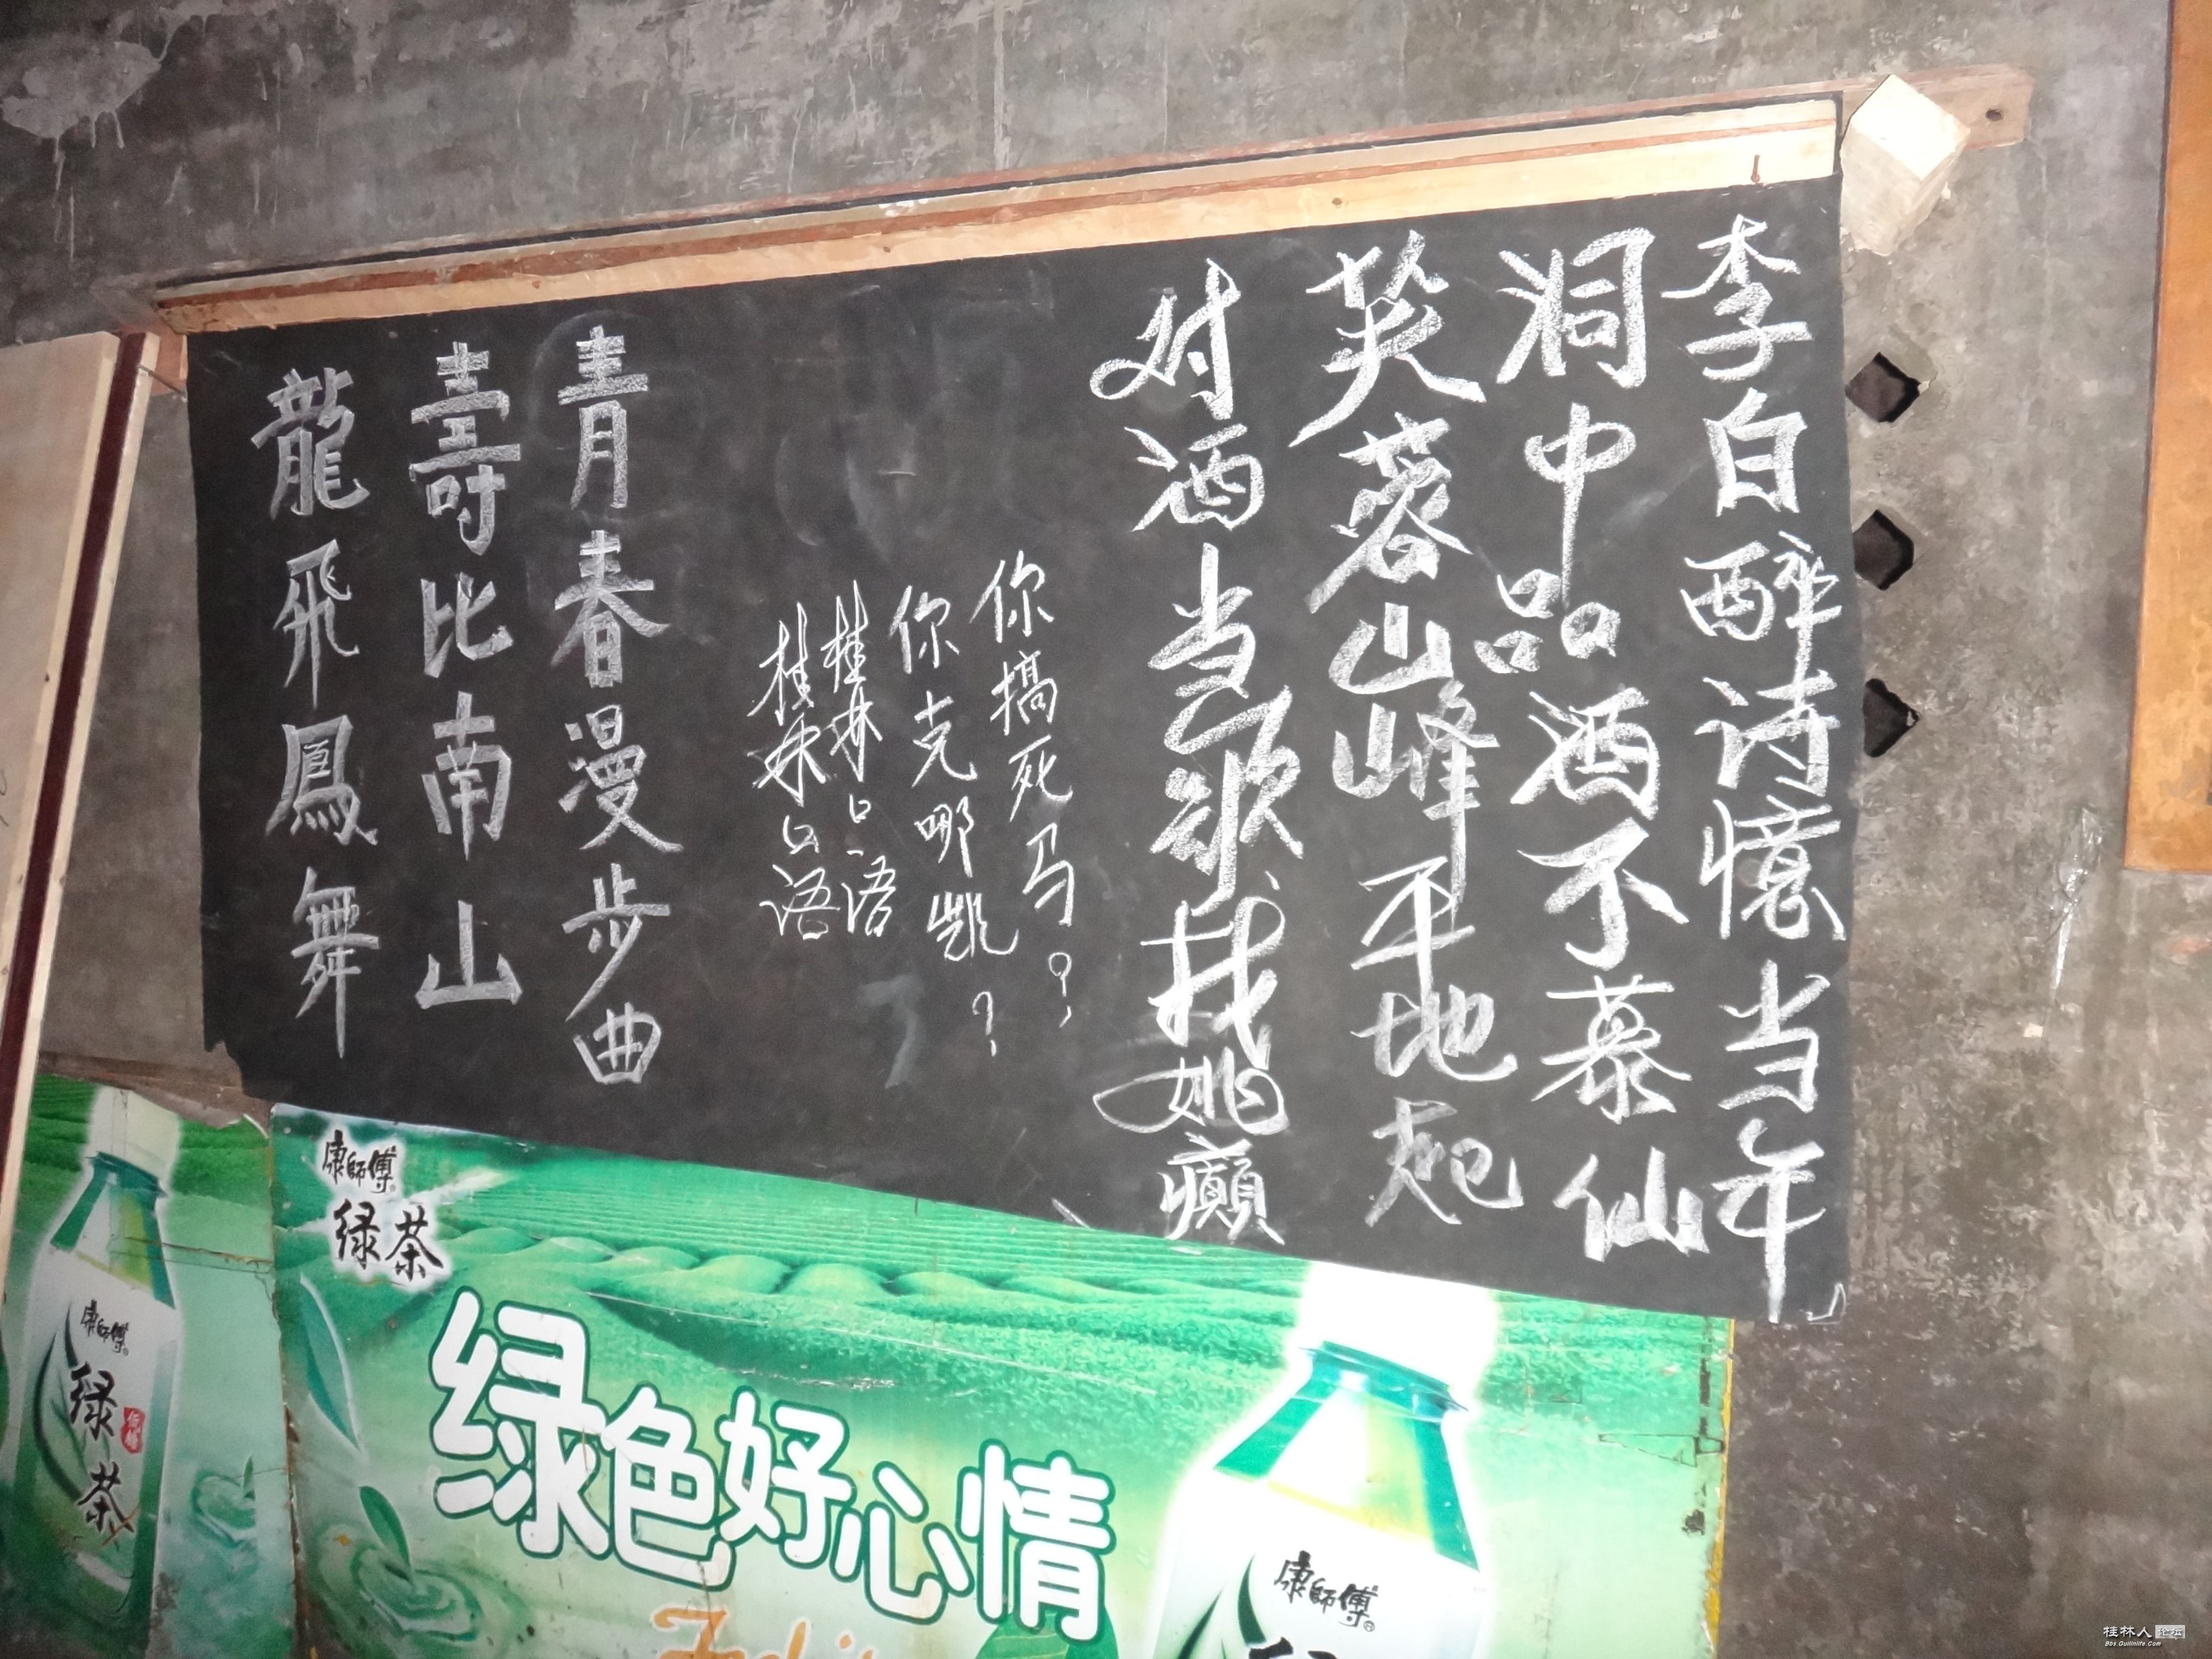 李白醉诗憶当年
洞中品酒不慕仙
芙蓉山峰平地起
对酒当歌我姚癲
你搞死马?
你克哪凯?
桂林口语
桂林口语
青春漫步曲
壽比南山
龍飛鳳舞
康師傅
绿茶
绿色好心情
康師傅
绿茶
康師傅
桂林人论坛
Bbs.Guilinlife.Com